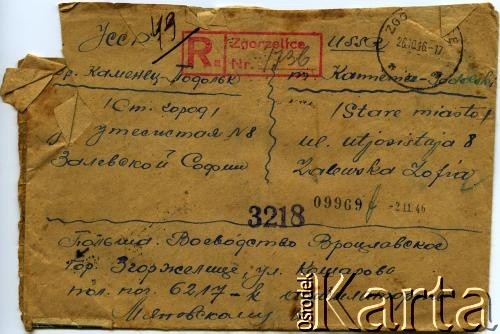 УССР 49
R. Zgorzelice
Nr. 1736
ZGO
26.10.46-17
a
USSR
гр. Каменец-Подольк
m. Kamieniec-Podolski
/Ст. город/
/Stare miasto/
утесистая №8
ul. utjosistaja 8
Залевской Софии
Zalewska Zofia
3218
09969
-2.11.46
Польша. Воеводство Вроцлавское
Гор. Згоржелице, ул. Кошарово
пол. поч. 6217-к
Мяновскому
Ośrodek
Karta